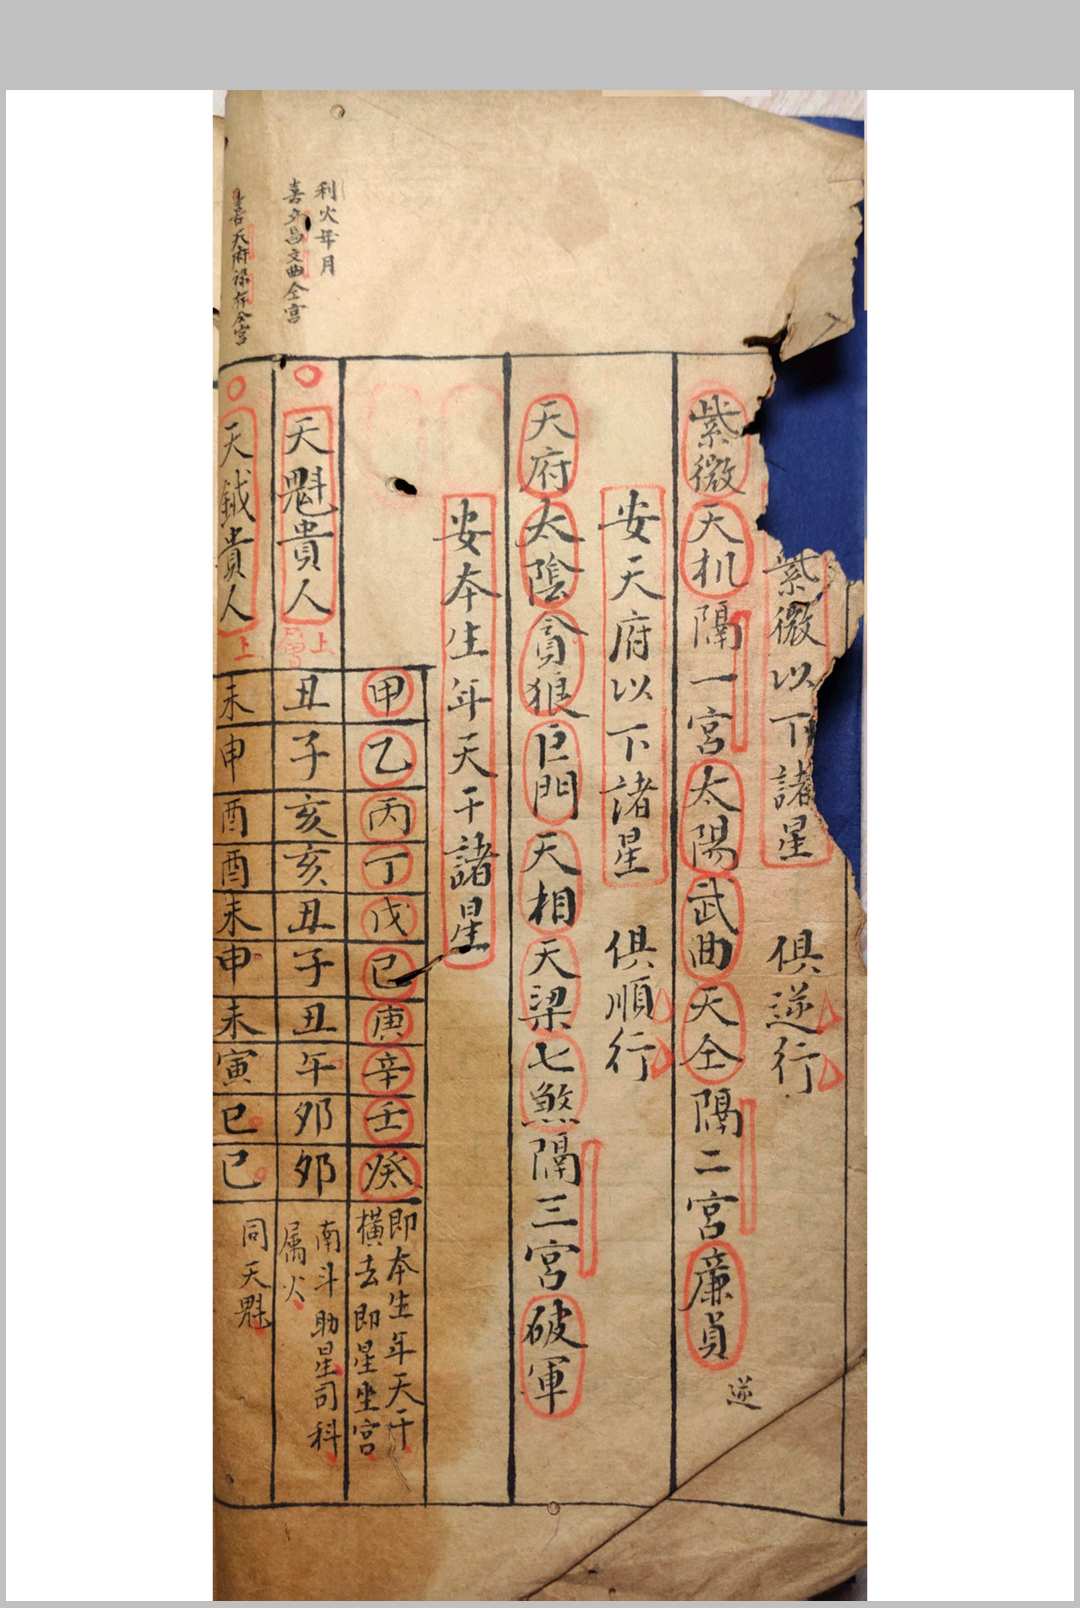 紫微以下諸星　俱逆行
紫微天机隔一宮太陽武曲天仝隔二宮廉貞　逆
安天府以下諸星　俱順行
天府太陰貪狼巨門天相天梁七煞隔三宮破軍
安本生年天干諸星
甲乙丙丁戊己庚辛壬癸
即本生年天干
橫去即星坐宮
利火年月
喜文昌文曲仝宮
天魁貴人　上
丑子亥亥丑子丑午卯卯
南斗助星司科
属火
喜天府祿存仝宮
天鉞貴人　上
未申酉酉未申未寅巳巳
同天魁